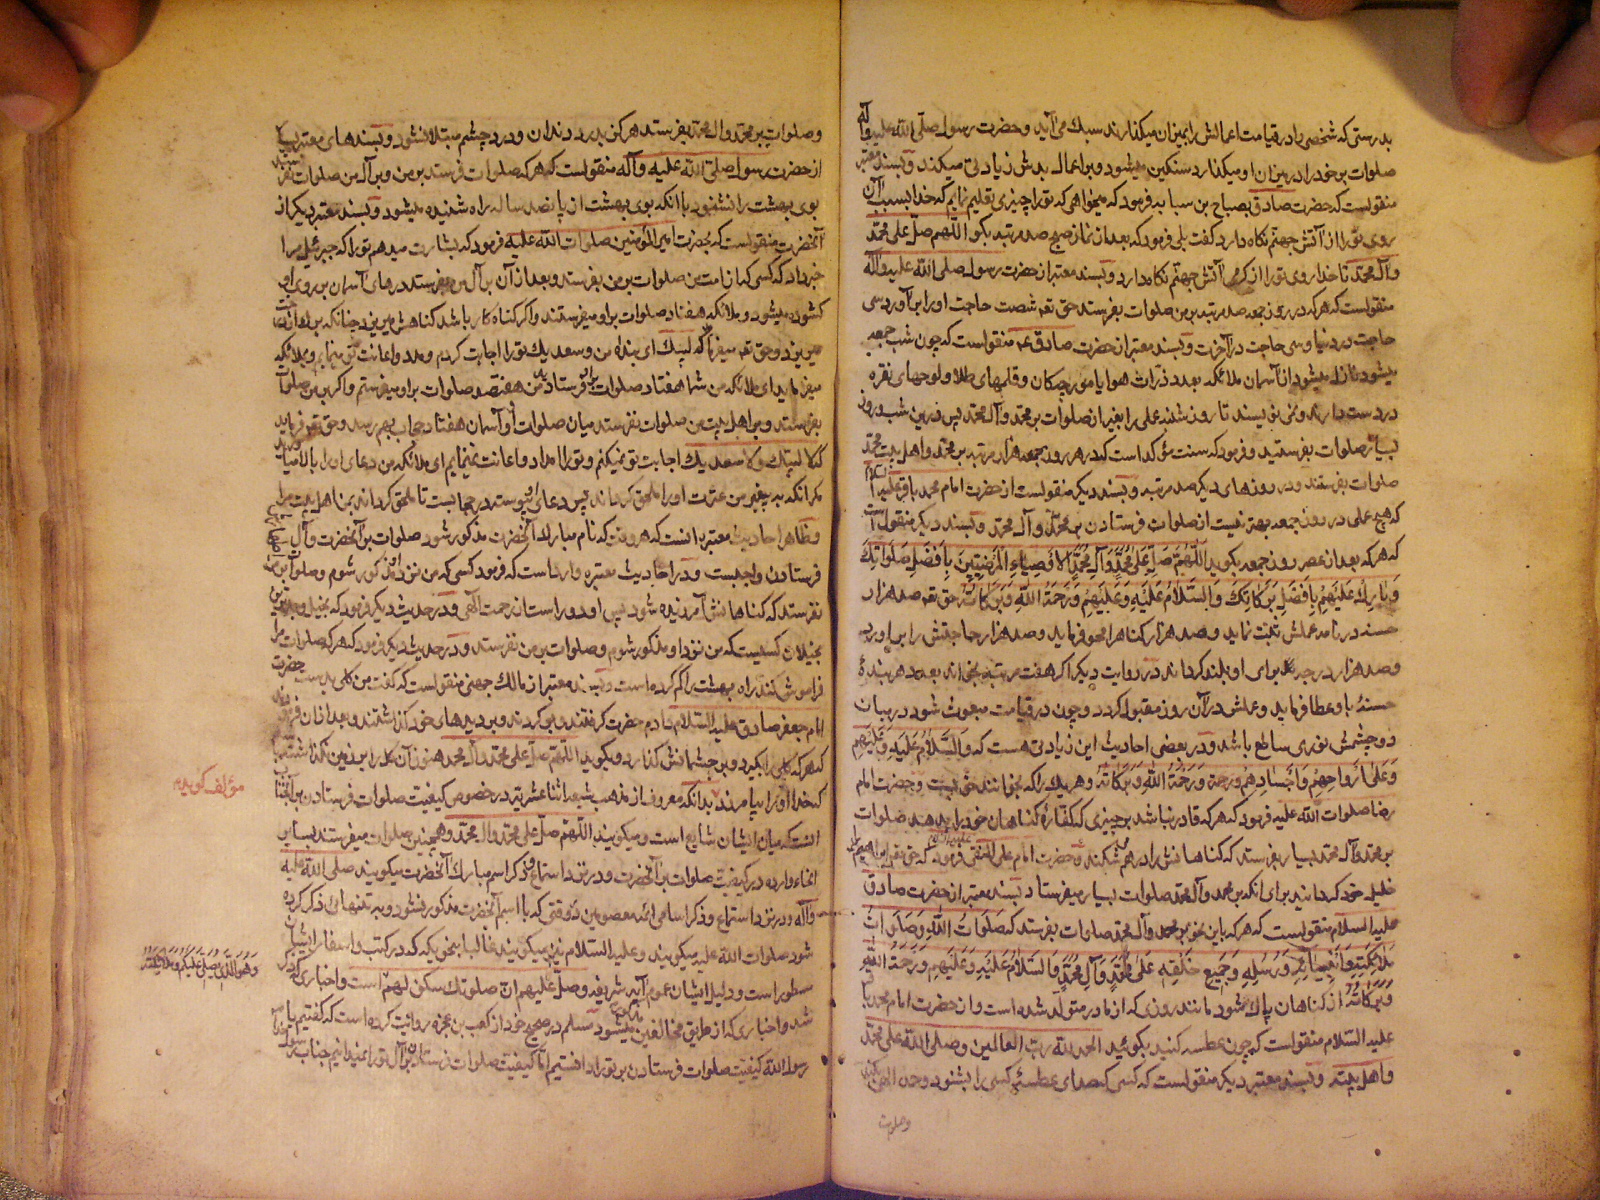 بدرستی که شخصی را در قیامت اعمالش را بمیزان میگذارند سبک می آید و حضرت رسول صلی الله علیه وآله
صلوات بر خود را در میزان او میگذارد سنگین میشود و بر اعمال بدش زیادتی میکند و بسند معتبر
منقولست که حضرت صادق بصباح بن سیابه فرمود که میخواهی که تو را چیزی تعلیم نمایم که خدا بسبب آن
روی تو را از آتش جهنم نگاه دارد گفت بلی فرمود که بعد از نماز صبح صد مرتبه بگو اللهم صل علی محمد
وآل محمد تا خدا روی تو را از گرمی آتش جهنم نگاه دارد و بسند معتبر از حضرت رسول صلی الله علیه وآله
منقولست که هر که در روز جمعه صد مرتبه بر من صلوات بفرستد حق تعالی شصت حاجت او را برآورد سی
حاجت در دنیا و سی حاجت در آخرت و بسند معتبر از حضرت صادق ع منقولست که چون شب جمعه
میشود نازل میشود از آسمان ملائکه بعدد ذرات هوا یا مورچگان و قلمهای طلا و لوحهای نقره
در دست دارند و نمی نویسند تا روز شنبه عملی را بغیر از صلوات بر محمد وآل محمد پس درین شب و روز
بسیار صلوات بفرستید و فرمود که سنت مؤکد است که در هر روز جمعه هزار مرتبه بر محمد و اهل بیت محمد
صلوات بفرستند و در روزهای دیگر صد مرتبه و بسند دیگر منقولست از حضرت امام محمد باقر علیه السلام
که هیچ عملی در روز جمعه بهتر نیست از صلوات فرستادن بر محمد وآل محمد و بسند دیگر منقول است
که هر که بعد از عصر روز جمعه بگوید اللهم صل علی محمد وآل محمد الاوصیاء المرضیین بافضل صلواتک
وبارک علیهم بافضل برکاتک والسلام علیه وعلیهم ورحمة الله وبرکاته حق تعالی صد هزار
حسنه در نامه عملش ثبت نماید و صد هزار گناه را محو فرماید و صد هزار حاجتش را برآورد
و صد هزار درجه برای او بلند گرداند در روایت دیگر اگر هفت مرتبه بخواند بعدد هر بندۀ
حسنۀ باو عطا فرماید و عملش در آن روز مقبول گردد و چون در قیامت مبعوث شود در میان
دو چشمش نوری ساطع باشد و در بعضی احادیث این زیادتی هست که والسلام علیه وعلیهم
وعلی ارواحهم واجسادهم ورحمة ورحمة الله وبرکاته و هر یک را که بخوانند خوبست و حضرت امام
رضا صلوات الله علیه فرمود که هر که قادر نباشد بر چیزی که کفارۀ گناهان خود را بدهد صلوات
بر محمد وآل محمد بسیار بفرستد که گناهانش را در هم شکند و حضرت امام علی النقی علیه السلام فرمود که حق تعالی ابراهیم را
خلیل خود گردانید برای آنکه بر محمد وآل محمد صلوات بسیار میفرستاد و بسند معتبر از حضرت صادق
علیه السلام منقولست که هر که باین نحو بر محمد وآل محمد صلوات بفرستد که صلوات الله وصلوات
ملائکته وانبیائه ورسله وجمیع خلقه علی محمد وآل محمد والسلام علیه وعلیهم ورحمة الله
وبرکاته از گناهان پاک میشود مانند روزی که از مادر متولد شده است و از حضرت امام محمد باقر
علیه السلام منقولست که چون عطسه کنید بگوئید الحمد لله رب العالمین وصلی الله علی محمد
واهل بیته و بسند معتبر دیگر منقولست که کسی که صدای عطسۀ کسی را بشنود و حمد الهی بکند
وصلوات
وصلوات بر محمد وآل محمد بفرستد هرگز بدرد دندان و درد چشم مبتلا نشود و بسندهای معتبر بسیار
از حضرت رسول صلی الله علیه وآله منقولست که هر که صلوات فرستد بر من و بر آل من صلوات نفرستد
بوی بهشت را نشنود با آنکه بوی بهشت از پانصد ساله راه شنیده میشود و بسند معتبر دیگر از
آنحضرت منقولست که بحضرت امیر المؤمنین صلوات الله علیه فرمود که بشارت میدهم تو را که جبرئیل مرا
خبر داد که کسی که از امت من صلوات بر من بفرستد و بعد از آن بر آل من بفرستد درهای آسمان بر روی او
گشوده میشود و ملائکه هفتاد صلوات بر او میفرستند و اگر گناه کار باشد گناهش میریزد چنانکه برگ از درخت
میریزد و حق تعالی میفرماید که لبیک ای بندۀ من و سعدیک تو را اجابت کردم و مدد و اعانت تو مینمایم و بملائکه
میفرماید ای ملائکه من شما هفتاد صلوات بر او فرستادید من هفتصد صلوات بر او میفرستم و اگر بر من صلوات
بفرستد و بر اهل بیت من صلوات نفرستد میان صلوات او و آسمان هفتاد حجاب بهم رسد و حق تعالی فرماید
که لا لبیک ولا سعدیک اجابت تو نمیکنم و تو را امداد و اعانت نمینمایم ای ملائکه من دعای او را بالا میارید
مگر آنکه به پیغمبر من عترت او را ملحق گرداند پس دعای او پیوسته در حجابست تا ملحق گرداند بمن اهل بیت مرا
و ظاهر احادیث معتبره آنست که هر وقت که نام مبارک آنحضرت مذکور شود صلوات بر آنحضرت وآل
فرستادن واجبست و در احادیث معتبره وارد است که فرمود کسی که من نزد او مذکور شوم و صلوات بر من
نفرستد که گناهانش آمرزیده شود پس او دور است از رحمت الهی و در حدیث دیگر فرمود که بخیل و بدترین
بخیلان کسیست که من نزد او مذکور شوم و صلوات بر من نفرستد و در حدیث دیگر فرمود که هر که صلوات مرا
فراموش کند راه بهشت را گم کرده است و بسند معتبر از مالک جهنی منقولست که گفت من گلی بدست حضرت
امام جعفر صادق علیه السلام دادم حضرت گرفتند و بو کردند و بر دیدهای خود گذاشتند و بعد از آن فرمودند
که هر که گلی را بگیرد و بر چشمانش گذارد و بگوید اللهم صل علی محمد وآل محمد هنوز آن گل را بر زمین نگذاشته باشد
که خدا او را بیامرزد بدانکه معروف از مذهب شیعه اثنا عشریه در خصوص کیفیت صلوات فرستادن بر آنجناب
آنست که میان ایشان شایع است و میگویند اللهم صل علی محمد وآل محمد و همچنین صلوات میفرستند بسایر
انحاء وارده در کیفیت صلوات بر آنحضرت و در نزد استماع و ذکر اسم مبارک آنحضرت میگویند صلی الله علیه
وآله و در نزد استماع و ذکر اسامی ائمه معصومین در وقتی که با اسم آنحضرت مذکور نشود و به تنهائی ذکر کرده
شود صلوات الله علیه میگویند و علیه السلام نیز میگویند غالبا بنحوی که در کتب و اسفار ایشان
مسطور است و دلیل ایشان عموم آیه شریفه وصل علیهم ان صلوتک سکن لهم است و اخباری که ذکر
شد و اخباری که از طریق مخالفین مذکور میشود مسلم در صحیح خود از کعب بن عجره روایت کرده است که گفتیم یا
رسول الله کیفیت صلوات فرستادن بر تو را دانستیم اما کیفیت صلوات فرستادن بر آل تو را نمیدانیم جناب رسول
مؤلف گوید